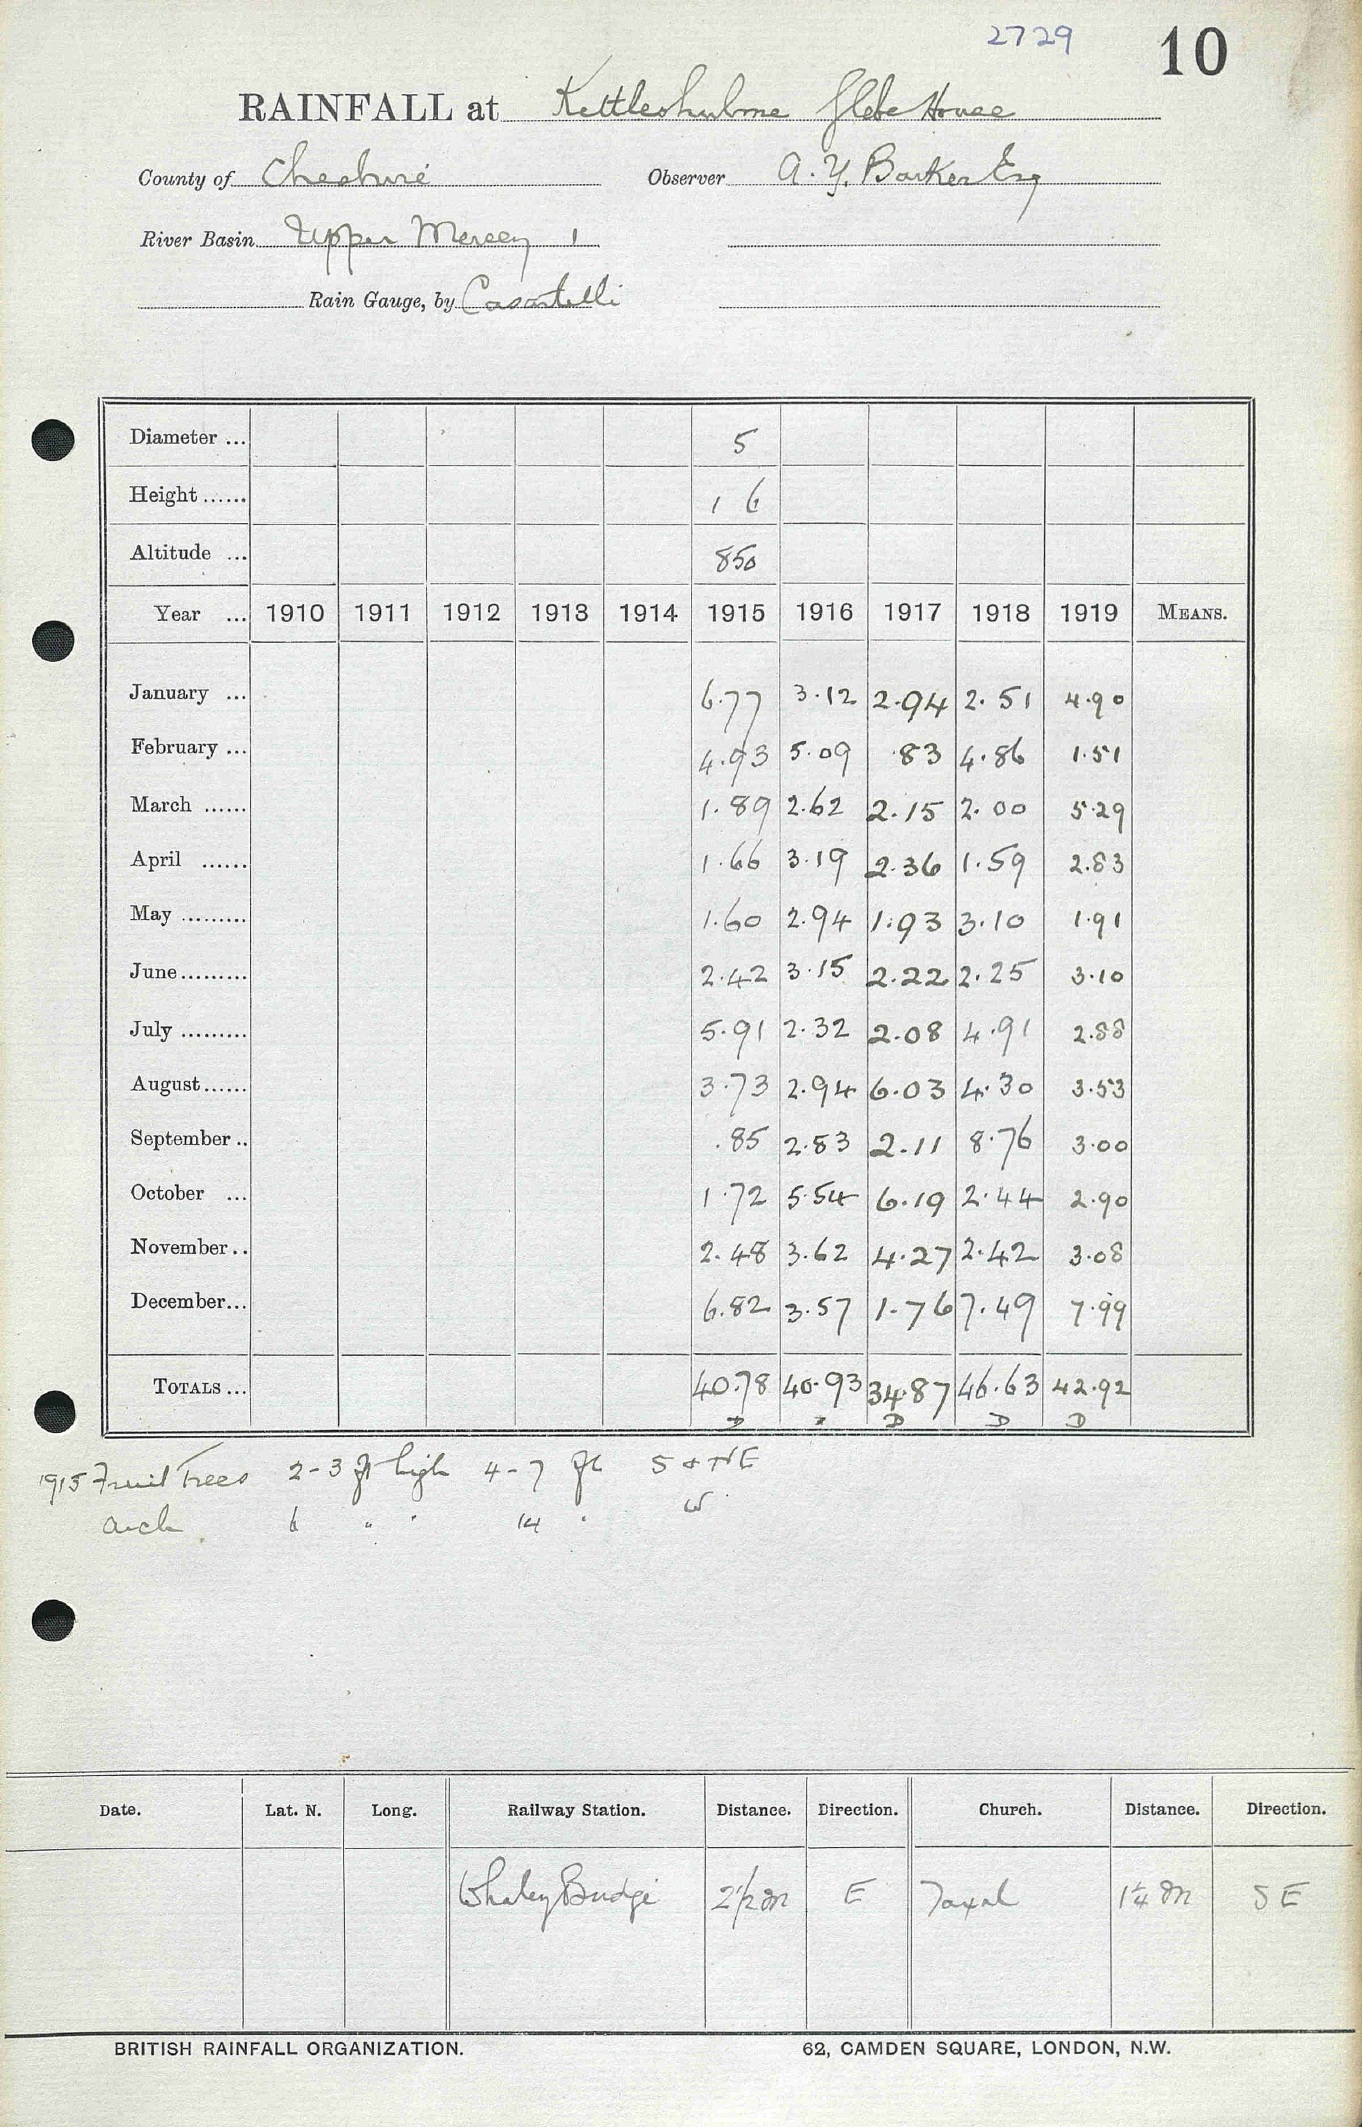 2729 10
RAINFALL at Kettleshulme Glebe House
County of Cheshire Observer A. Y. Barker Esq
River Basin Upper Mersey 1
Rain Gauge, by Casartelli
Diameter ... 5
Height ...... 1 6
Altitude ... 850
Year ... 1910 1911 1912 1913 1914 1915 1916 1917 1918 1919 MEANS.
January ... 6.77 3.12 2.94 2.51 4.90
February ... 4.93 5.09 .83 4.86 1.51
March ...... 1.89 2.62 2.15 2.00 5.29
April ...... 1.66 3.19 2.36 1.59 2.83
May ......... 1.60 2.94 1.93 3.10 1.91
June ......... 2.42 3.15 2.22 2.25 3.10
July ......... 5.91 2.32 2.08 4.91 2.88
August ...... 3.73 2.94 6.03 4.30 3.53
September .. .85 2.83 2.11 8.76 3.00
October ... 1.72 5.54 6.19 2.44 2.90
November .. 2.48 3.62 4.27 2.42 3.08
December ... 6.82 3.57 1.76 7.49 7.99
TOTALS ... 40.78 40.93 34.87 46.63 42.92
D D D D
1915 Fruit Trees 2-3 ft high 4-7 ft S & NE
Arch 6 " " 14 " W
Date. Lat. N. Long. Railway Station. Distance. Direction. Church. Distance. Direction.
Whaley Bridge 2 1/2 m E Taxal 1 1/4 m S E
BRITISH RAINFALL ORGANIZATION. 62, CAMDEN SQUARE, LONDON, N.W.